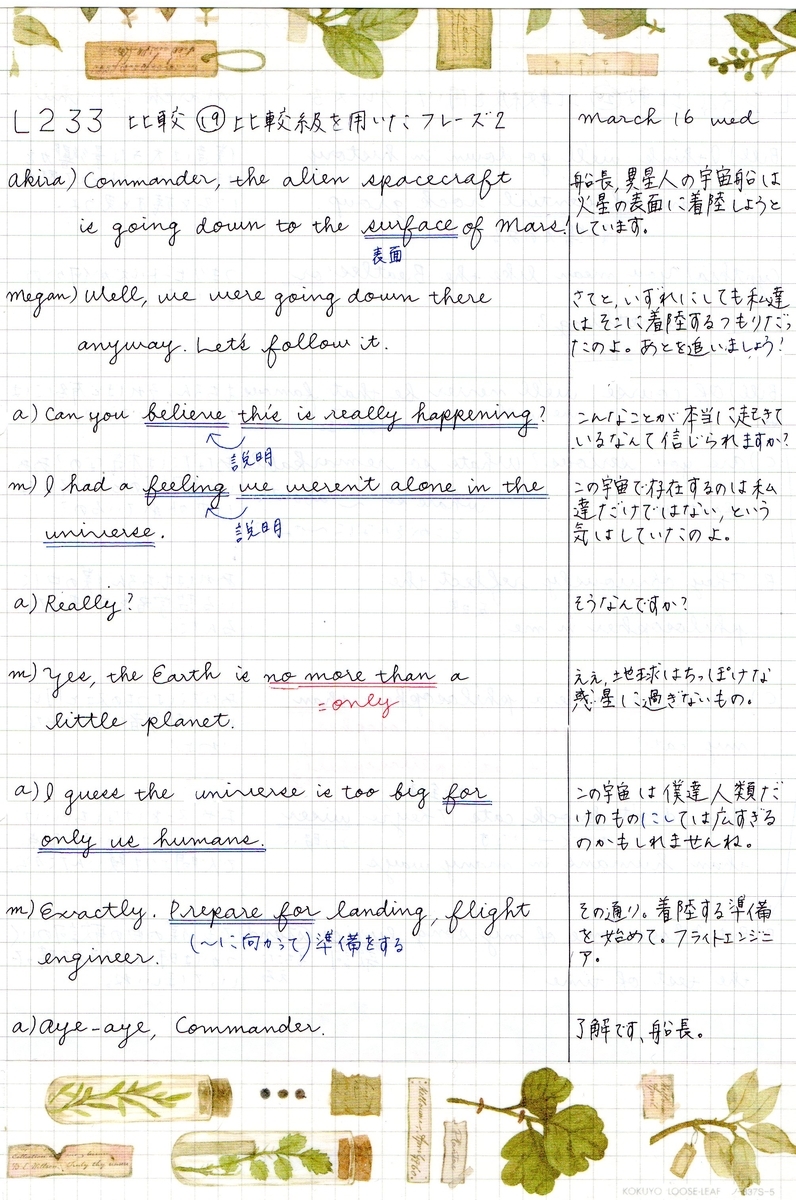 L233 比較 ⑲ 比較級を用いたフレーズ2
March 16 wed
akira) Commander, the alien spacecraft
is going down to the surface of Mars!
表面
船長, 異星人の宇宙船は
火星の表面に着陸しようと
しています。
megan) Well, we were going down there
anyway. Let's follow it.
さてと, いずれにしても私達
はそこに着陸するつもりだっ
たのよ。あとを追いましょう!
a) Can you believe this is really happening?
説明
こんなことが本当に起きて
いるなんて信じられますか?
m) I had a feeling we weren't alone in the
universe.
説明
この宇宙で存在するのは私
達だけではない, という
気はしていたのよ。
a) Really?
そうなんですか?
m) Yes, the Earth is no more than a
=only
little planet.
ええ, 地球はちっぽけな
惑星に過ぎないもの。
a) I guess the universe is too big for
only us humans.
この宇宙は僕達人類だ
けのものにしては広すぎる
のかもしれませんね。
m) Exactly. Prepare for landing, flight
(〜に向かって) 準備をする
engineer.
その通り。着陸する準備
を始めて。フライトエンジニ
ア。
a) Aye-aye, Commander.
了解です、船長。
KOKUYO LOOSE-LEAF